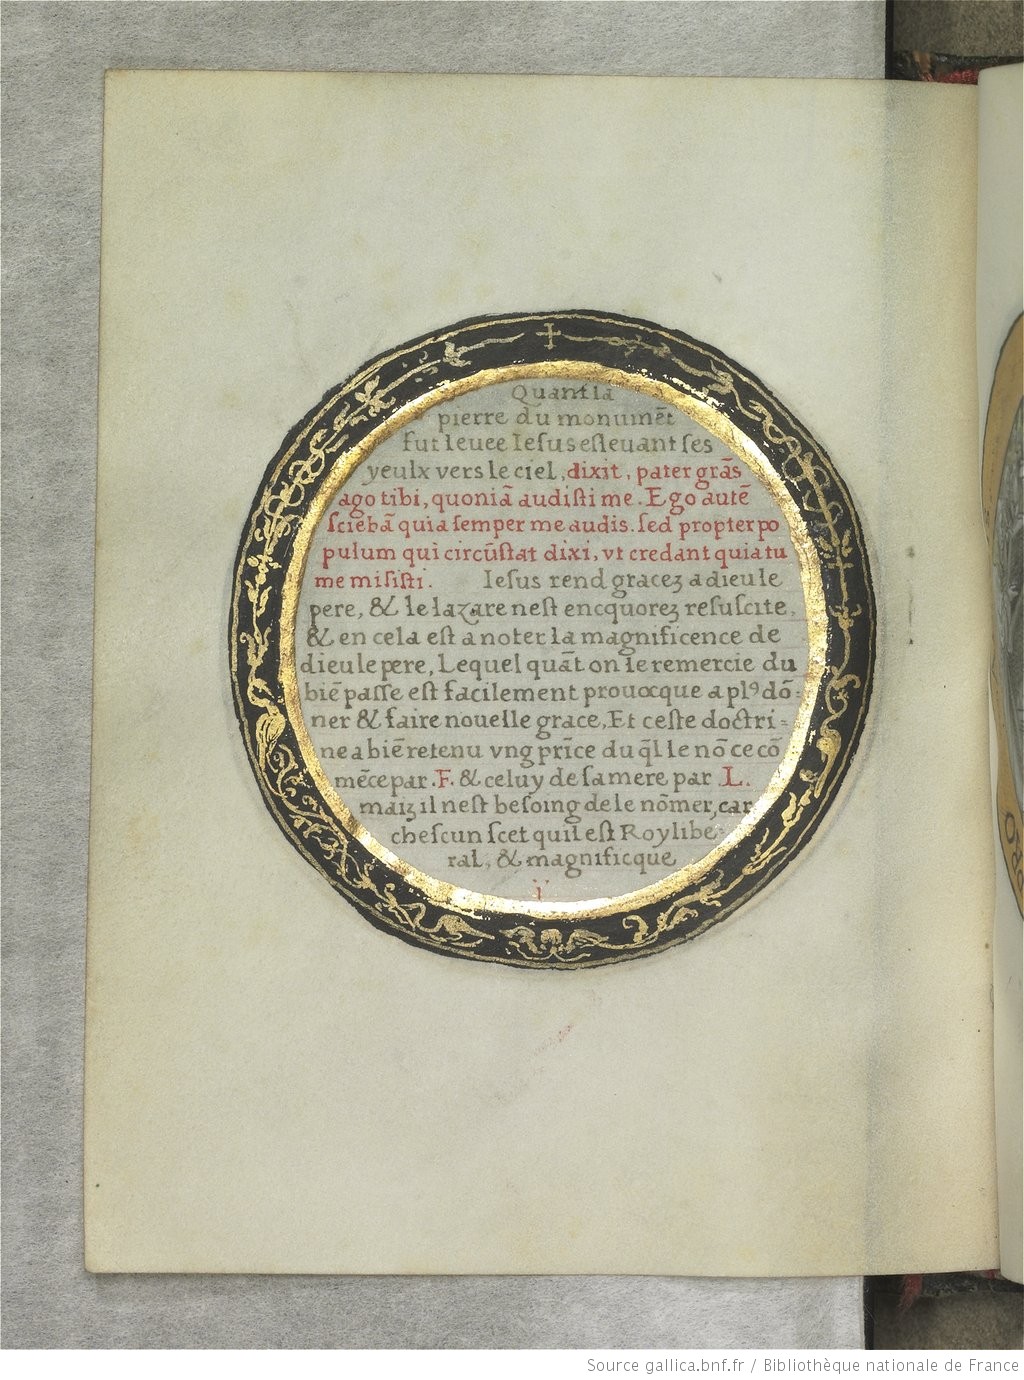 Quant la
pierre du monumēt
fut leuee Iesus esleuant ses
yeulx vers le ciel, dixit, pater grās
ago tibi, quoniā audisti me. Ego autē
sciebā quia semper me audis. sed propter po
pulum qui circūstat dixi, vt credant quia tu
me misisti. Iesus rend gracez a dieu le
pere, & le lazare nest encquorez resuscite,
& en cela est a noter la magnificence de
dieu le pere, Lequel quāt on le remercie du
biē passe est facilement prouocque a plꝰ dō=
ner & faire nouelle grace, Et ceste doctri=
ne a biē retenu vng prīce du ql̄ le nō ce cō
mēce par .F. & celuy de sa mere par .L.
maiz il nest besoing de le nōmer, car
chescun scet quil est Roy libe=
ral, & magnificque
Source gallica.bnf.fr / Bibliothèque nationale de France